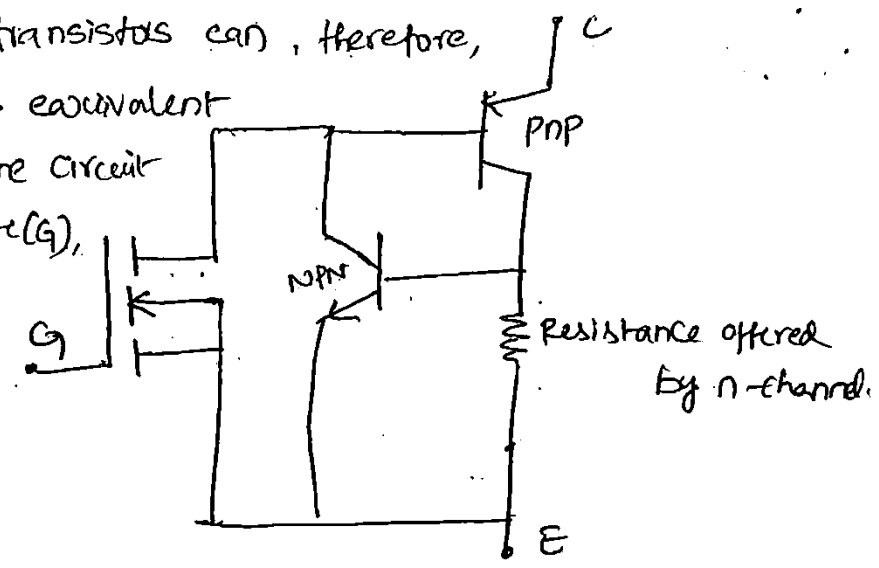 transistors can, therefore,
equivalent
circuit
(G),
C
PNP
NPN
G
Resistance offered
by n-channel.
E